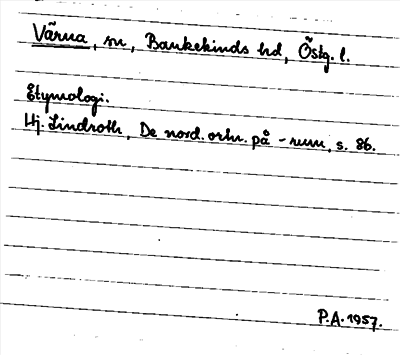 Värna, sn, Bankekinds hd, Östg. l.
Etymologi.
Hj. Lindroth, De nord. ortn. på -rum, s. 86.
P.A. 1957.